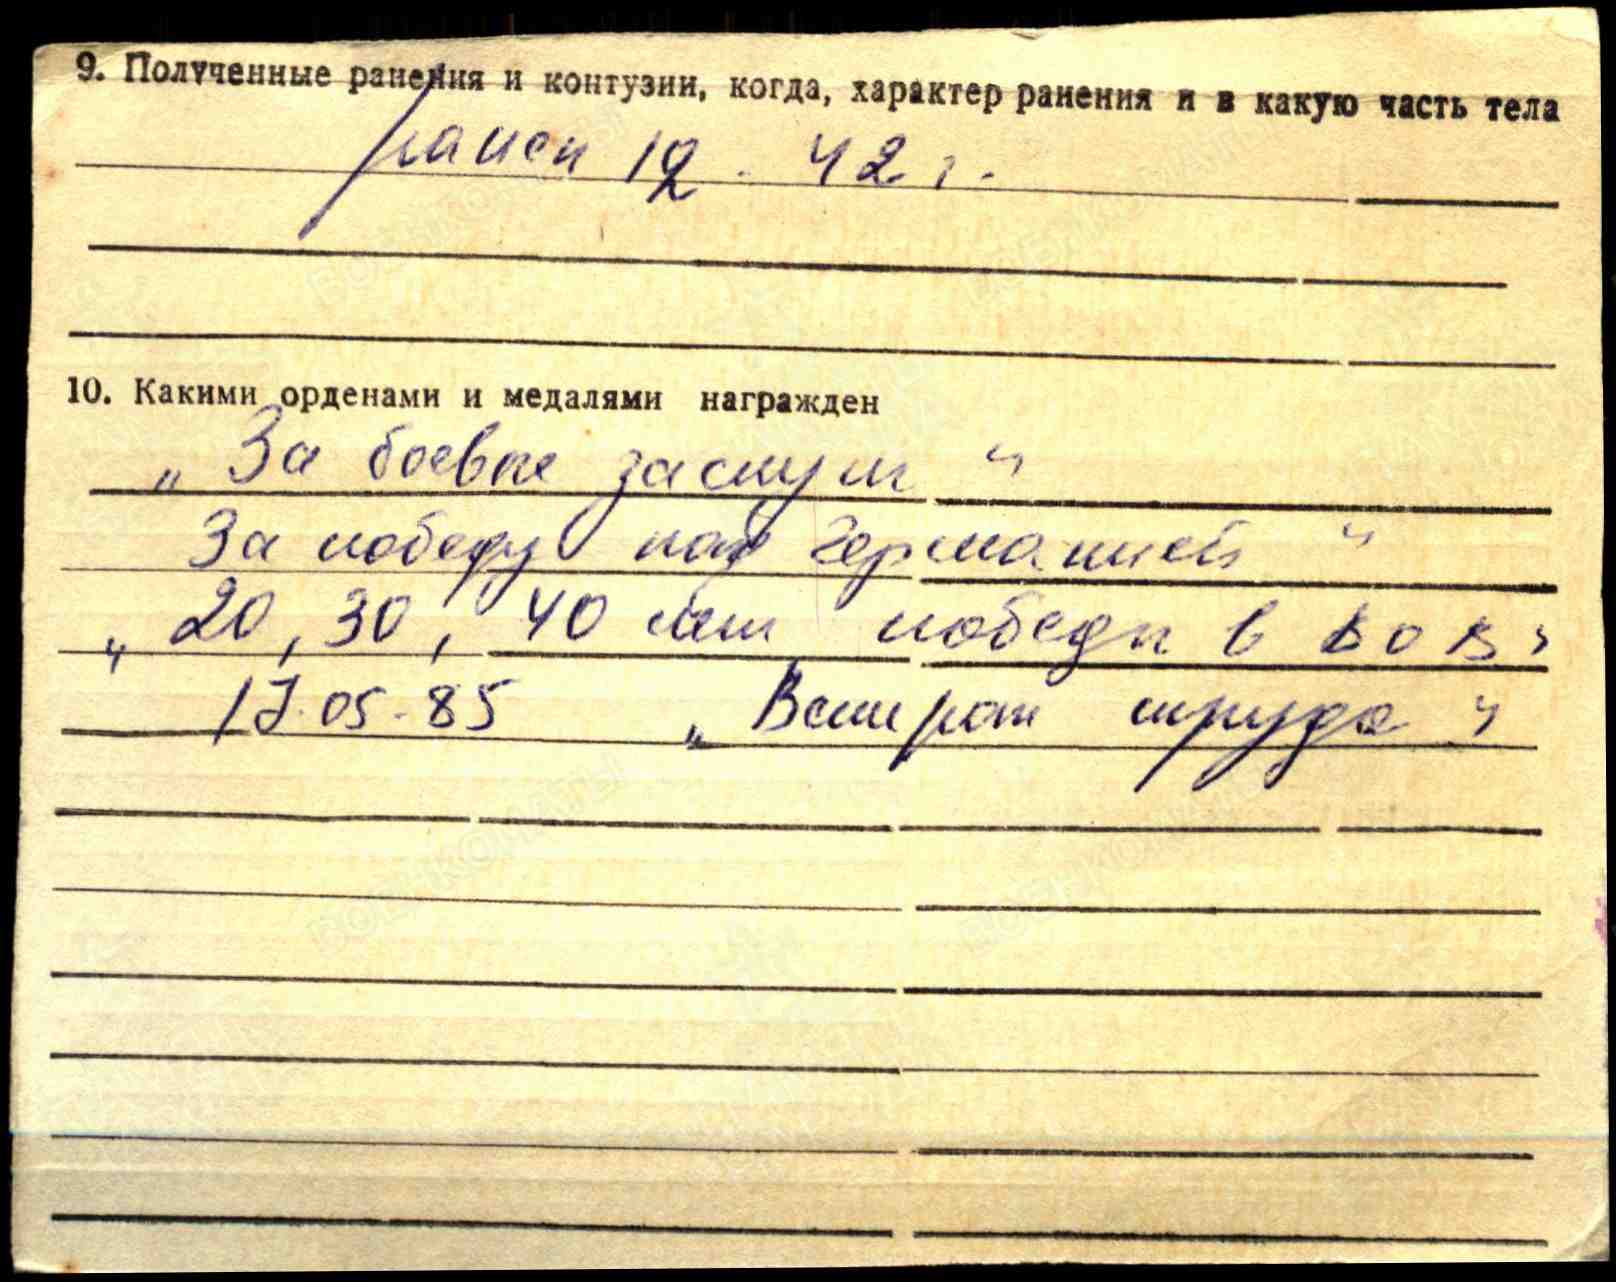 9. Полученные ранения и контузии, когда, характер ранения и в какую часть тела
ранен 12. 42 г.
10. Какими орденами и медалями награжден
„За боевые заслуги"
За победу над Германией"
„20, 30, 40 лет победы в ВОВ"
17.05.85 „Ветеран труда"
ВОЕНКОМАТЫ
ВОЕНКОМАТЫ
ВОЕНКОМАТЫ
ВОЕНКОМАТЫ